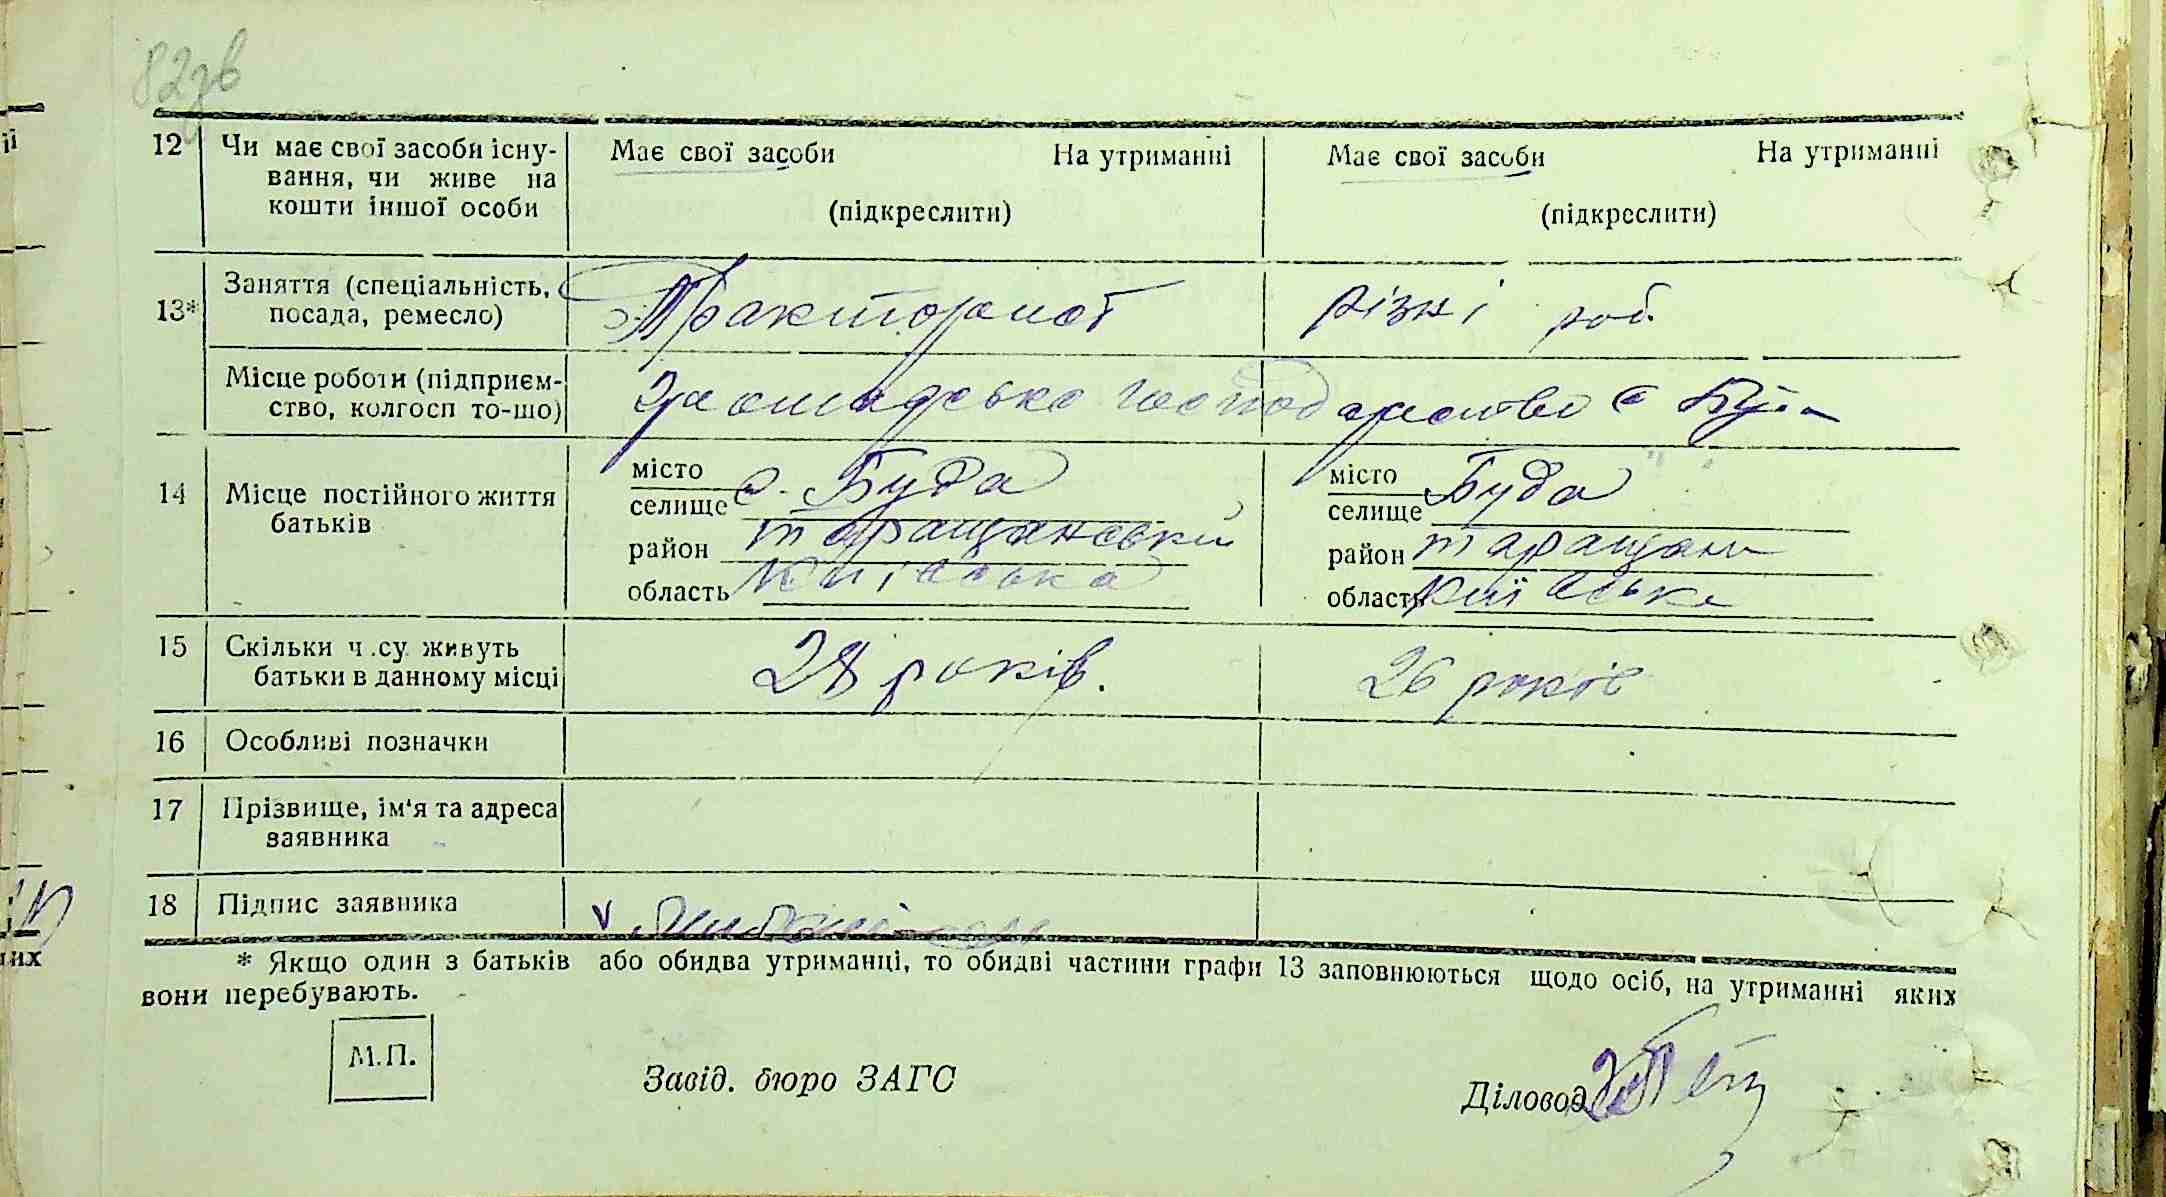 82зв
12 Чи має свої засоби існу- Має свої засоби На утриманні Має свої засоби На утриманні
вання, чи живе на
кошти іншої особи (підкреслити) (підкреслити)
13* Заняття (спеціальність, Тракторист різні роб.
посада, ремесло)
Місце роботи (підприєм- Громадське господарство с Буда
ство, колгосп то-що)
14 Місце постійного життя місто с. Буда місто Буда
батьків селище селище
район таращановский район таращан
область Київська область Київська
15 Скільки ч.су живуть 28 років. 26 років
батьки в данному місці
16 Особливі позначки
17 Прізвище, ім'я та адреса
заявника
18 Підпис заявника v
* Якщо один з батьків або обидва утриманці, то обидві частини графи 13 заповнюються щодо осіб, на утриманні яких
вони перебувають.
М.П.
Завід. бюро ЗАГС
Діловод